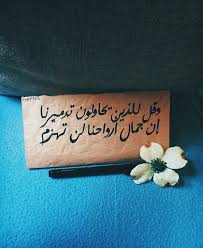 وقل للذين يحاولون تدميرنا
إن جمال أرواحنا لن تهزم